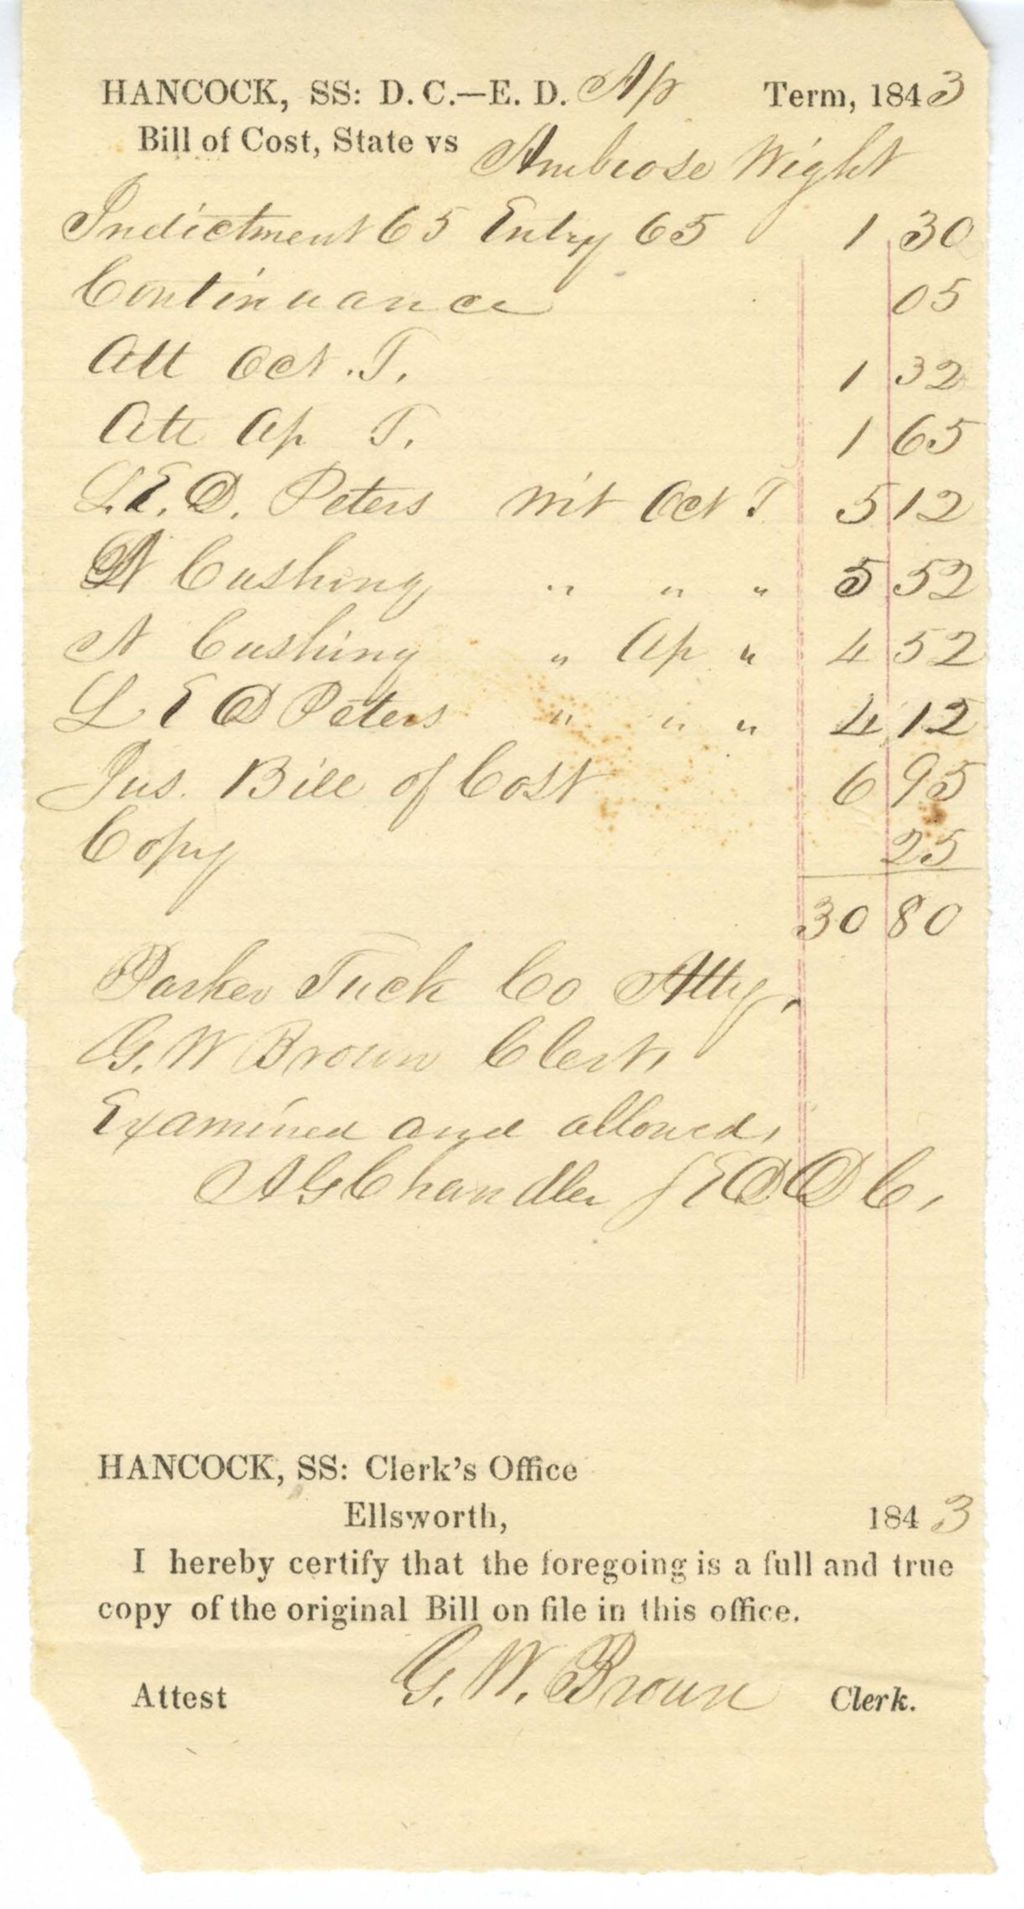 HANCOCK, SS: D. C.—E. D. Ap Term, 1843
Bill of Cost, State vs Ambrose Wight
Indictment 65 Entry 65 1 30
Continuance 05
Att Oct. T. 1 32
Att Ap T. 1 65
L. E. D. Peters Wit Oct T 5 12
N Cushing " " " 5 52
N Cushing " Ap " 4 52
L E D Peters " " " 4 12
Jus. Bill of Cost 6 95
Copy 25
30 80
Parker Tuck Co Atty,
G. W Brown Clerk,
Examined and allowed,
A G Chandler J E D D C,
HANCOCK, SS: Clerk's Office
Ellsworth, 1843
I hereby certify that the foregoing is a full and true
copy of the original Bill on file in this office.
Attest G. W. Brown Clerk.